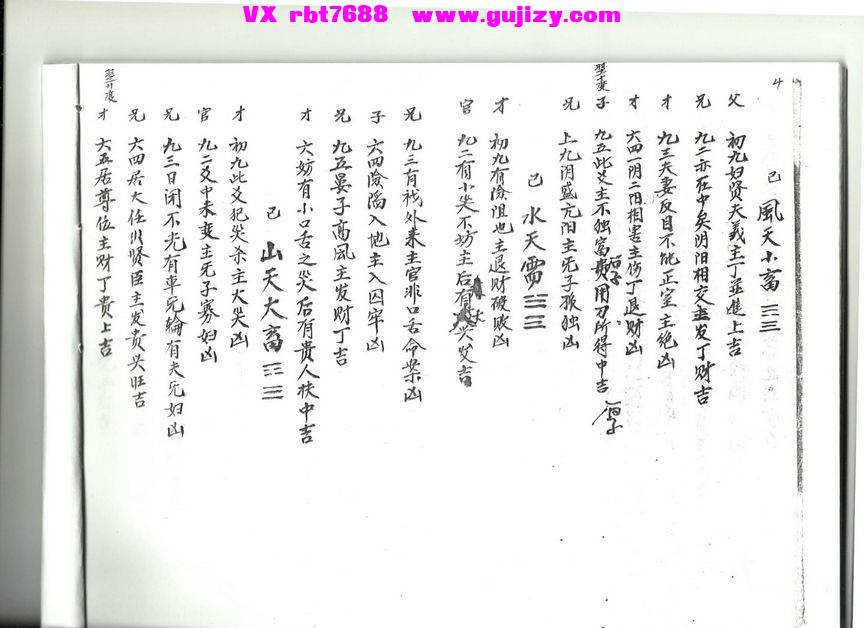 VX rbt7688 www.gujizy.com
4
巳 風天小畜
父 初九妇贤夫義主丁並進上吉
兄 九二亦在中矣阴阳相交主发丁财吉
才 九三夫妻反目不能正室主绝凶
才 六四一阴二阳相害主伤丁退财凶
子 九五此爻主不独富贵用刃所得中吉
兄 上九阴盛亢阳主无子孤独凶
巳 水天需
才 初九有險阻也主退财破败凶
官 九二有小哭不妨主后有吉
兄 九三有找外来主官非口舌命案凶
子 六四險滔入地主入囚牢凶
兄 九五晏子高風主发财丁吉
才 六妨有小口舌之災后有貴人扶中吉
巳 山天大畜
才 初九此爻犯災杀主大哭凶
官 九二爻中未变主无子寡妇凶
兄 九三日闭不光有車无輪有夫无妇凶
兄 六四居大任以贤臣主发贵兴旺吉
才 六五居尊位主财丁貴上吉